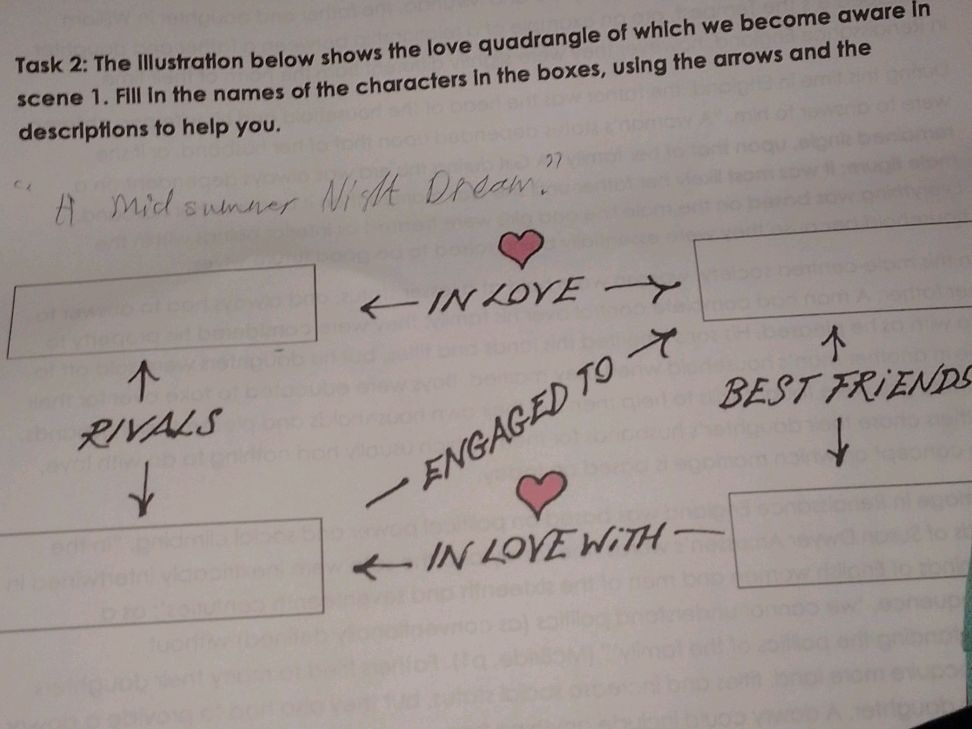 Task 2: The illustration below shows the love quadrangle of which we become aware in
scene 1. Fill in the names of the characters in the boxes, using the arrows and the
descriptions to help you.
"A Midsummer Night Dream."
IN LOVE
RIVALS
ENGAGED TO
BEST FRIENDS
IN LOVE WITH